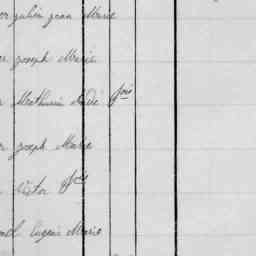 julien jean Marie
joseph Marie
Mathurin André fois
joseph Marie
Victor fois
Eugène Marie